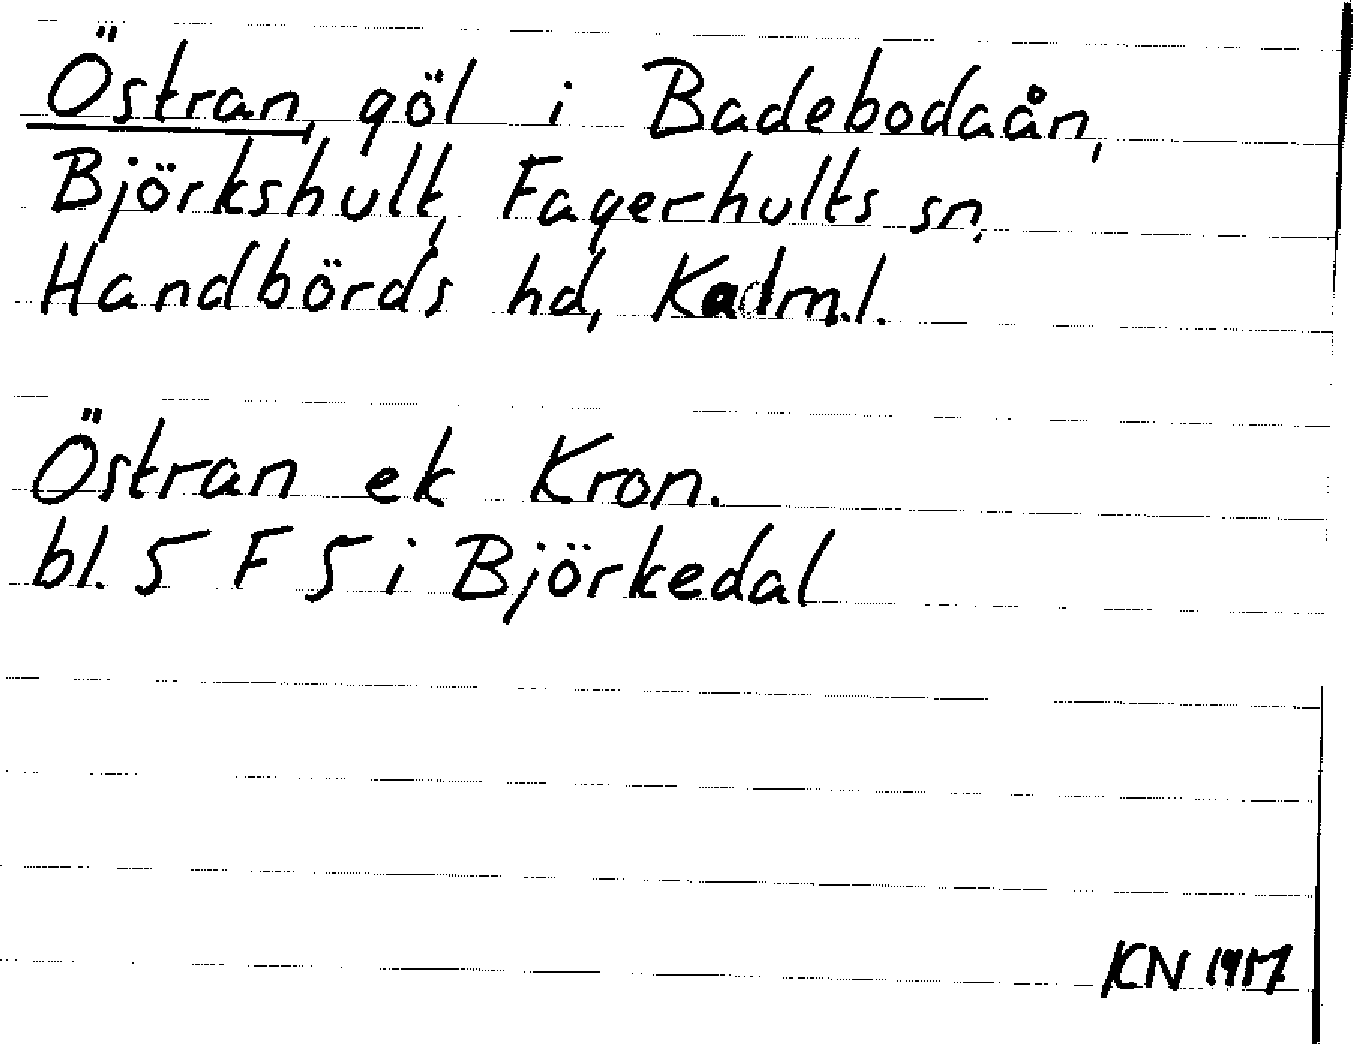 Östran, göl i Badebodaån,
Björkshult, Fagerhults sn,
Handbörds hd, Kadm.l.
Östran ek Kron.
bl. 5 F 5 i Björkedal
KN